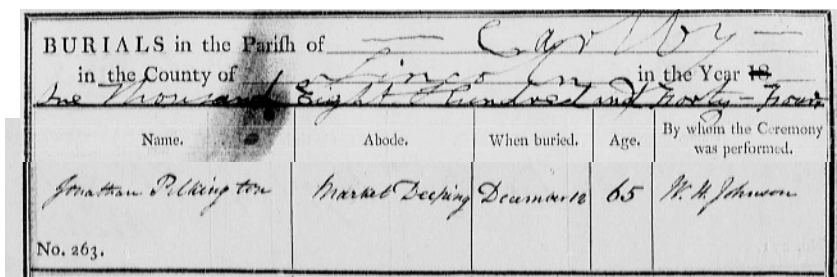 BURIALS in the Parish of Carlby
in the County of Lincoln in the Year 18
One Thousand Eight Hundred and Forty-Four
Name. Abode. When buried. Age. By whom the Ceremony was performed.
Jonathan Pilkington Market Deeping December 12 65 W. H. Johnson
No. 263.